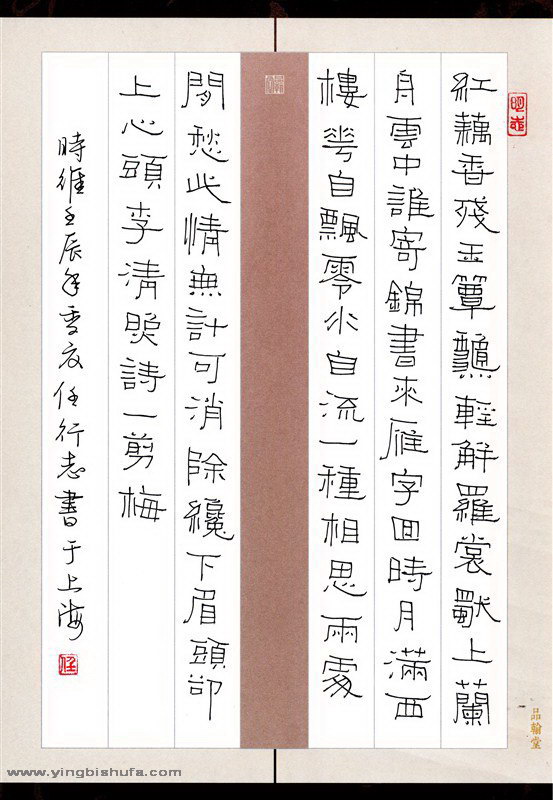 紅藕香殘玉簟龝輕解羅裳獨上蘭
舟雲中誰寄錦書來雁字囬時月滿西
樓花自飄零水自流一種相思兩處
閒愁此情無計可消除纔下眉頭卻
上心頭李清照詩一剪梅
時維壬辰年季夏任行志書于上海
任
品翰堂
www.yingbishufa.com